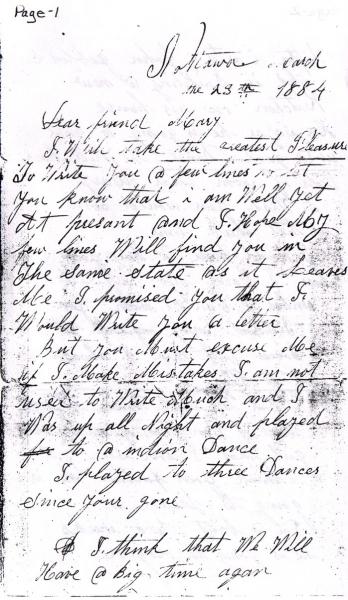 Page-1
Nottawa March
the 23 th 1884
Dear friend Mary
I Will take the Greatest Pleasure
To Write You @ few lines to let
You know that i am Well yet
At present @nd I Hope My
few lines Will find you in
the same state as it Leaves
Me I promised you that I
Would Write you @ letter
But you Must excuse Me
if I Make Mistakes I am not
used to Write Much and I
Was up all Night and played
to @ indion Dance
I played to three Dances
since your gone
I think that We Will
Have @ Big time again